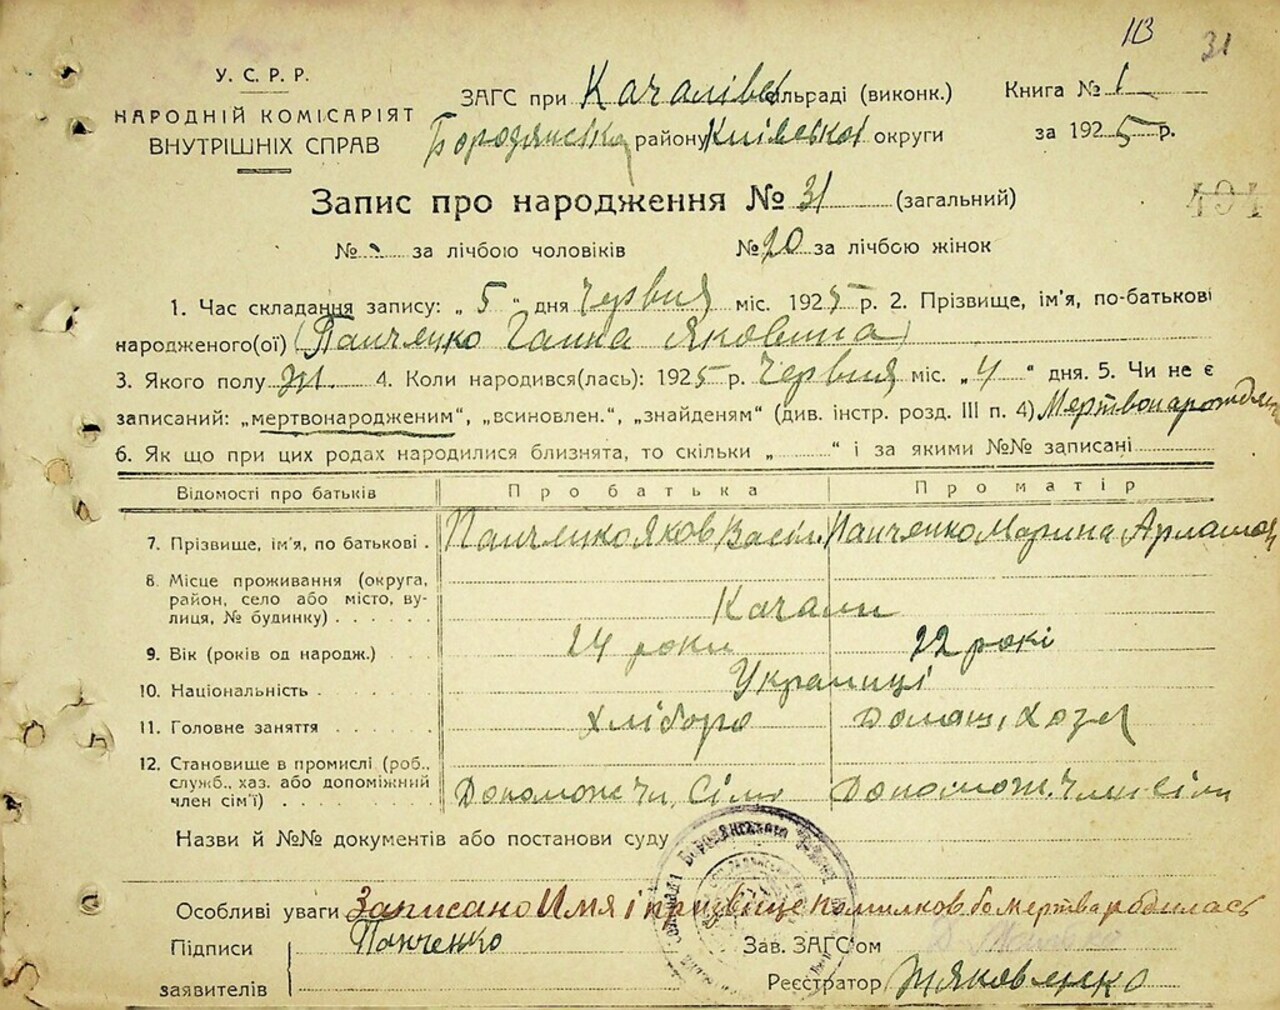 113 31
У. С. Р. Р.
НАРОДНІЙ КОМІСАРІЯТ
ВНУТРІШНІХ СПРАВ
ЗАГС при Качалівс сільраді (виконк.) Книга № 1
Бородянська району Київської округи за 1925 р.
Запис про народження № 31 (загальний)
494
№ - за лічбою чоловіків № 20 за лічбою жінок
1. Час складання запису: „ 5 “ дня Червня міс. 1925 р. 2. Прізвище, ім’я, по-батькові
народженого(ої) (Панченко Ганна Яковина)
3. Якого полу Жі. 4. Коли народився(лась): 1925 р. Червня міс. „ 4 “ дня. 5. Чи не є
записаний: „мертвонародженим“, „всиновлен.“, „знайденям“ (див. інстр. розд. III п. 4)
6. Як що при цих родах народилися близнята, то скільки „ “ і за якими №№ записані
Відомості про батьків Про батька Про матір
7. Прізвище, ім’я, по батькові . Панченко Яков Васіл. Панченко Марина
8. Місце проживання (округа,
район, село або місто, ву-
лиця, № будинку) . . . . . . Качали
9. Вік (років од народж.) 24 роки 22 рокі
10. Національність . Українці
11. Головне заняття Хліборо Домаш, Хозя
12. Становище в промислі (роб.,
служб., хаз. або допоміжний
член сім’ї) . . . . . . . . Допомож Чл, Сімі Допомож. Член сімі
Назви й №№ документів або постанови суду
Особливі уваги Записано Имя і призвіще помилков бо мертва родилась
Підписи Панченко Зав. ЗАГС’ом
заявителів Реєстратор Яковенко